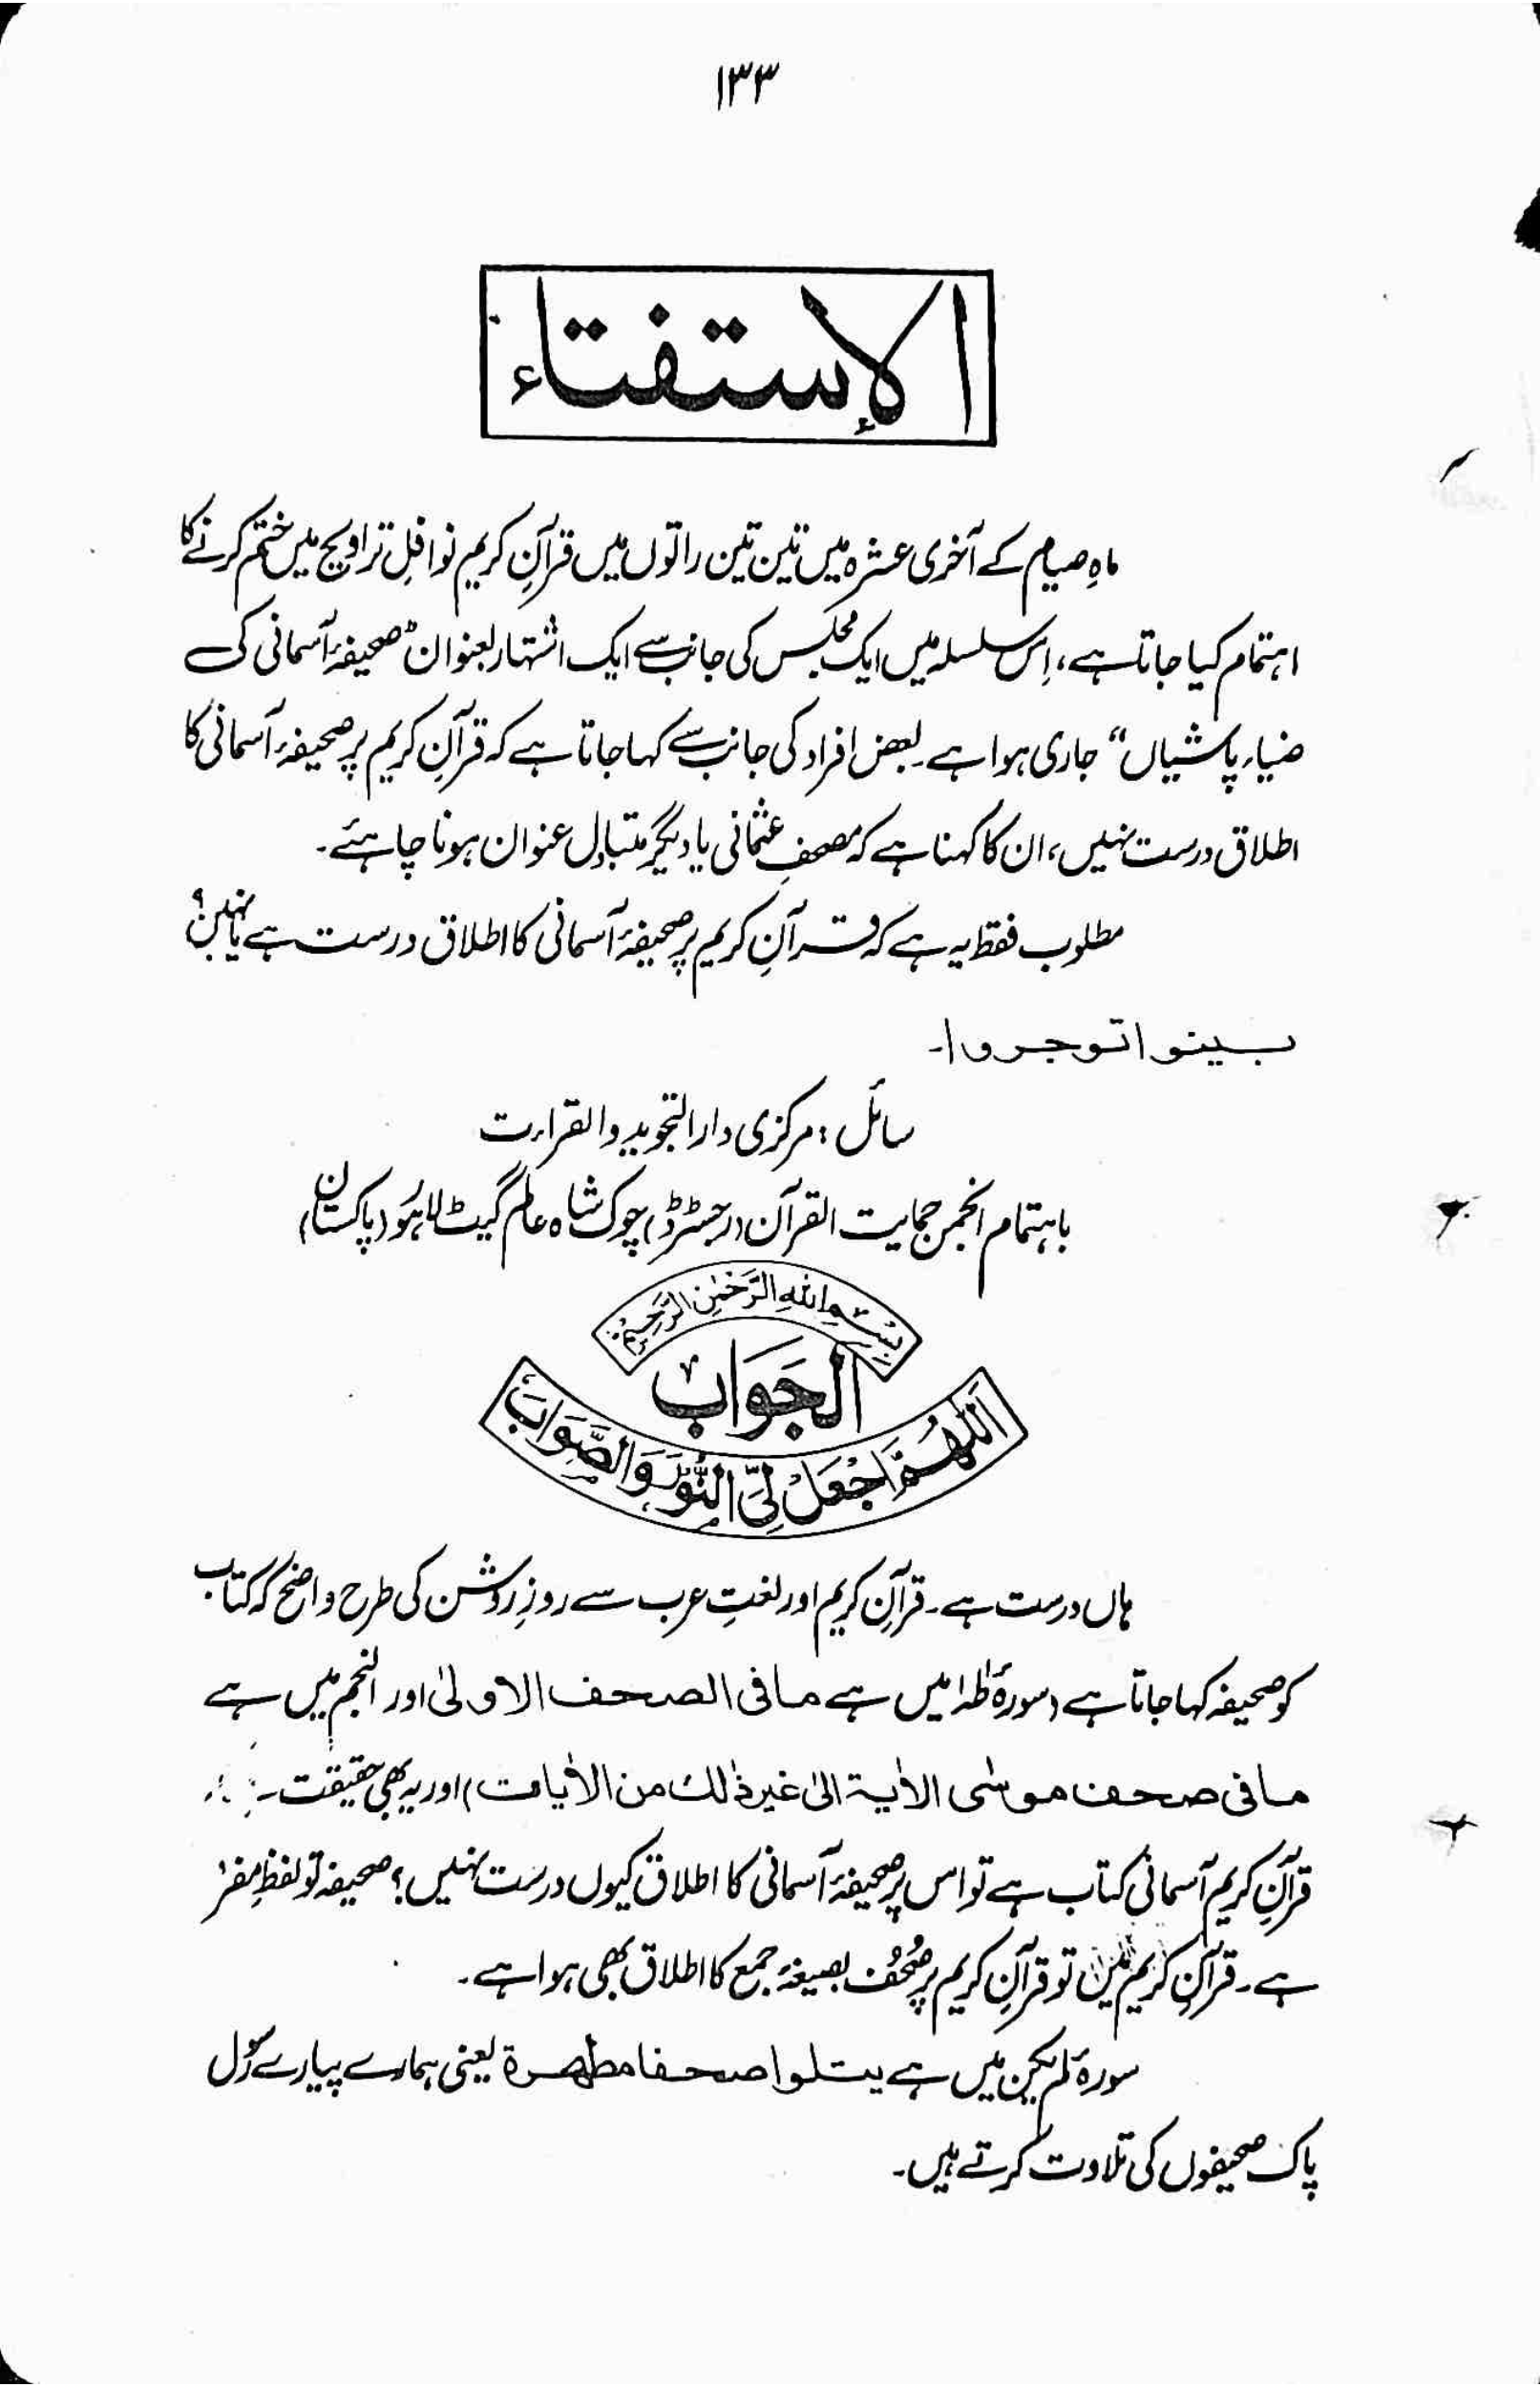 ۱۳۳
الإستفتاء
ماہِ صیام کے آخری عشرہ میں تین تین راتوں میں قرآنِ کریم نوافلِ تراویح میں ختم کرنے کا
اہتمام کیا جاتا ہے، اِس سلسلہ میں ایک مجلس کی جانب سے ایک اشتہار بعنوان "صحیفۂ آسمانی کی
ضیاء پاشیاں" جاری ہوا ہے۔ بعض افراد کی جانب سے کہا جاتا ہے کہ قرآنِ کریم پر صحیفۂ آسمانی کا
اطلاق درست نہیں، ان کا کہنا ہے کہ مصحفِ عثمانی یا دیگر متبادل عنوان ہونا چاہئے۔
مطلوب فقط یہ ہے کہ قرآنِ کریم پر صحیفۂ آسمانی کا اطلاق درست ہے یا نہیں؟
بینوا توجروا۔
سائل: مرکزی دار التجوید والقراءت
باہتمام انجمن حمایت القرآن (رجسٹرڈ) چوک شاہ عالم گیٹ لاہور (پاکستان)
بِسْمِ اللهِ الرَّحْمٰنِ الرَّحِيْمِ
الجَوَابُ
اَللّٰهُمَّ اجْعَلْ لِيَ النُّوْرَ وَالصَّوَابَ
ہاں درست ہے۔ قرآنِ کریم اور لغتِ عرب سے روزِ روشن کی طرح واضح کہ کتاب
کو صحیفہ کہا جاتا ہے (سورۂ طٰہٰ میں ہے مافی الصحف الاولیٰ اور النجم میں ہے
مافی صحف موسٰی الاٰیۃ الیٰ غیر ذٰلک من الاٰیات) اور یہ بھی حقیقت
قرآنِ کریم آسمانی کتاب ہے تو اس پر صحیفۂ آسمانی کا اطلاق کیوں درست نہیں؟ صحیفہ تو لفظِ مفرد
ہے۔ قرآنِ کریم میں تو قرآنِ کریم پر صُحُف بصیغۂ جمع کا اطلاق بھی ہوا ہے۔
سورۂ لم یکن میں ہے یتلوا صحفا مطھرۃ یعنی ہمارے پیارے رسول
پاک صحیفوں کی تلاوت کرتے ہیں۔